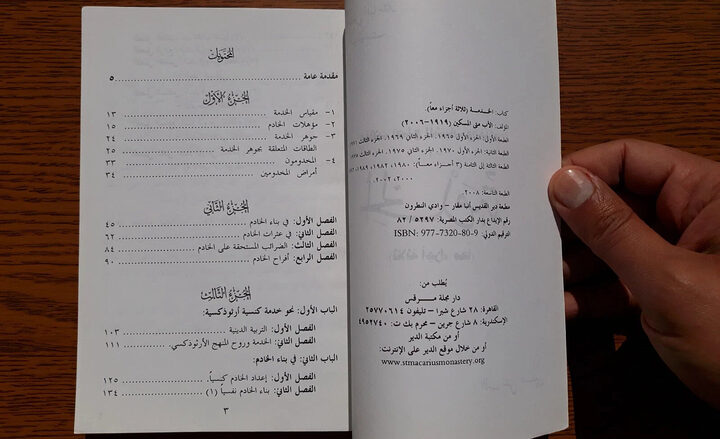 كتاب: الخدمة (ثلاثة أجزاء معاً).
المؤلف: الأب متى المسكين (١٩١٩-٢٠٠٦)
الطبعة الأولى: الجزء الأول ١٩٦٥. الجزء الثاني ١٩٦٩. الجزء الثالث
الطبعة الثانية: الجزء الأول ١٩٧٠. الجزء الثاني ١٩٧٥. الجزء
الطبعة الثالثة إلى الثامنة (٣ أجزاء معاً): ١٩٨٠، ١٩٨٢،
٢٠٠٠، ٢٠٠٢.
الطبعة التاسعة: ٢٠٠٨.
مطبعة دير القديس أنبا مقار - وادي النطرون
رقم الإيداع بدار الكتب المصرية: ٥٢٩٧ / ٨٢
الترقيم الدولي: ISBN: 977-7320-80-9
يُطلب من:
دار مجلة مرقس
القاهرة: ٢٨ شارع شبرا - تليفون ٢٥٧٧٠٦١٤
الإسكندرية: ٨ شارع جرين - محرم بك ت: ٤٩٥٢٧٤٠
أو من مكتبة الدير
أو من خلال موقع الدير على الإنترنت:
www.stmacariusmonastery.org
المحتويات
مقدمة عامة ٥
الجزء الأول
١- مقياس الخدمة ١٣
٢- مؤهلات الخادم ١٥
٣- جوهر الخدمة ٢٤
الطاقات المتعلقة بجوهر الخدمة ٢٥
٤- المخدومون ٣٣
أمراض المخدومين ٣٤
الجزء الثاني
الفصل الأول: في بناء الخادم ٤٥
الفصل الثاني: في عثرات الخادم ٦٢
الفصل الثالث: الضرائب المستحقة على الخادم ٨٤
الفصل الرابع: أفراح الخادم ٩٠
الجزء الثالث
الباب الأول: نحو خدمة كنسية أرثوذكسية:
الفصل الأول: التربية الدينية ١٠٣
الفصل الثاني: الخدمة وروح المنهج الأرثوذكسي. ١١١
الباب الثاني: في بناء الخادم:
الفصل الأول: إعداد الخادم كنسياً. ١٢٥
الفصل الثاني: بناء الخادم نفسياً (١) ١٣٤
٣